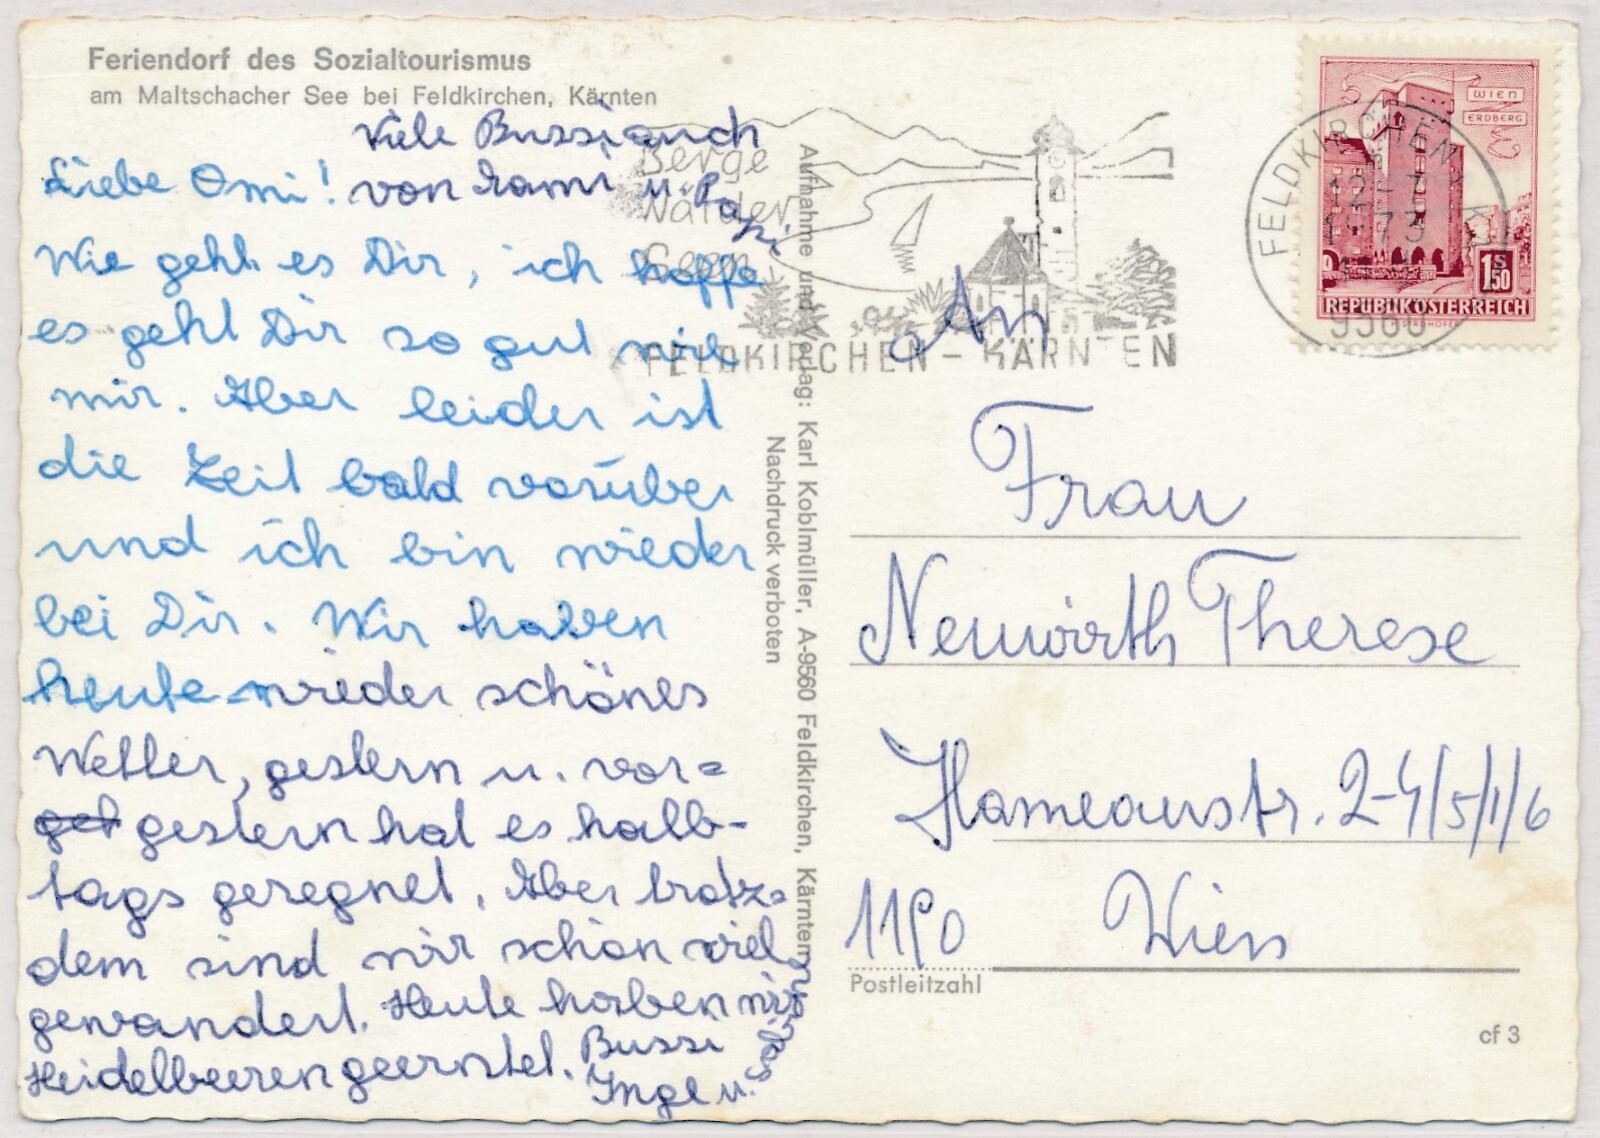 Feriendorf des Sozialtourismus
am Maltschacher See bei Feldkirchen, Kärnten
Viele Bussi auch
von Mami u. Papi
Liebe Omi!
Wie geht es Dir, ich hoffe
es geht Dir so gut wie
mir. Aber leider ist
die Zeit bald vorüber
und ich bin wieder
bei Dir. Wir haben
heute wieder schönes
Wetter, gestern u. vor=
ges gestern hat es halb-
tags geregnet. Aber trotz=
dem sind wir schon viel
gewandert. Heute haben wir
Heidelbeeren geerntet. Bussi
Inge u.
Aufnahme und Verlag: Karl Koblmüller, A-9560 Feldkirchen, Kärnten
Nachdruck verboten
Berge
Wälder
Seen
FELDKIRCHEN - KÄRNTEN
FELDKIRCHEN
12-7
1973
9560
WIEN
ERDBERG
1 S 50
REPUBLIK ÖSTERREICH
An
Frau
Neuwirth Therese
Hameaustr. 2-4/5/1/6
1190 Wien
Postleitzahl
cf 3